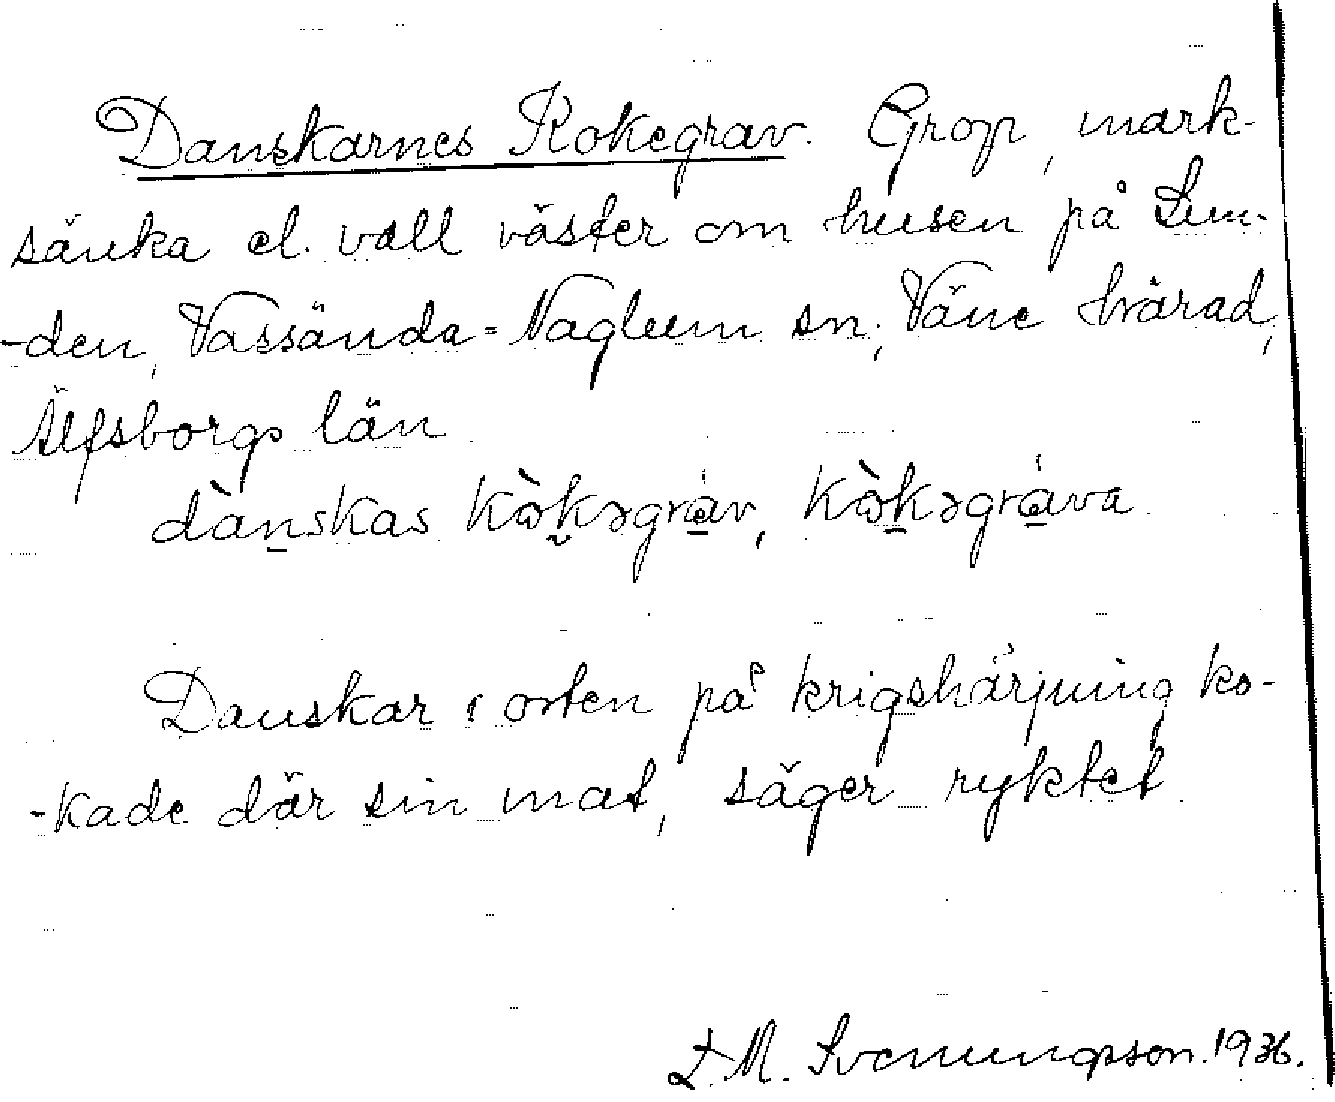 Danskarnes Kokegrav. Grop, mark-
sänka el. vall väster om husen på Lun-
-den, Vassända-Naglum sn, Väne härad,
Älfsborgs län
dànskas kòkəgráv, kòkəgráva
Danskar i orten på krigshärjning ko-
-kade där sin mat, säger ryktet.
L. M. Svenungsson. 1936.